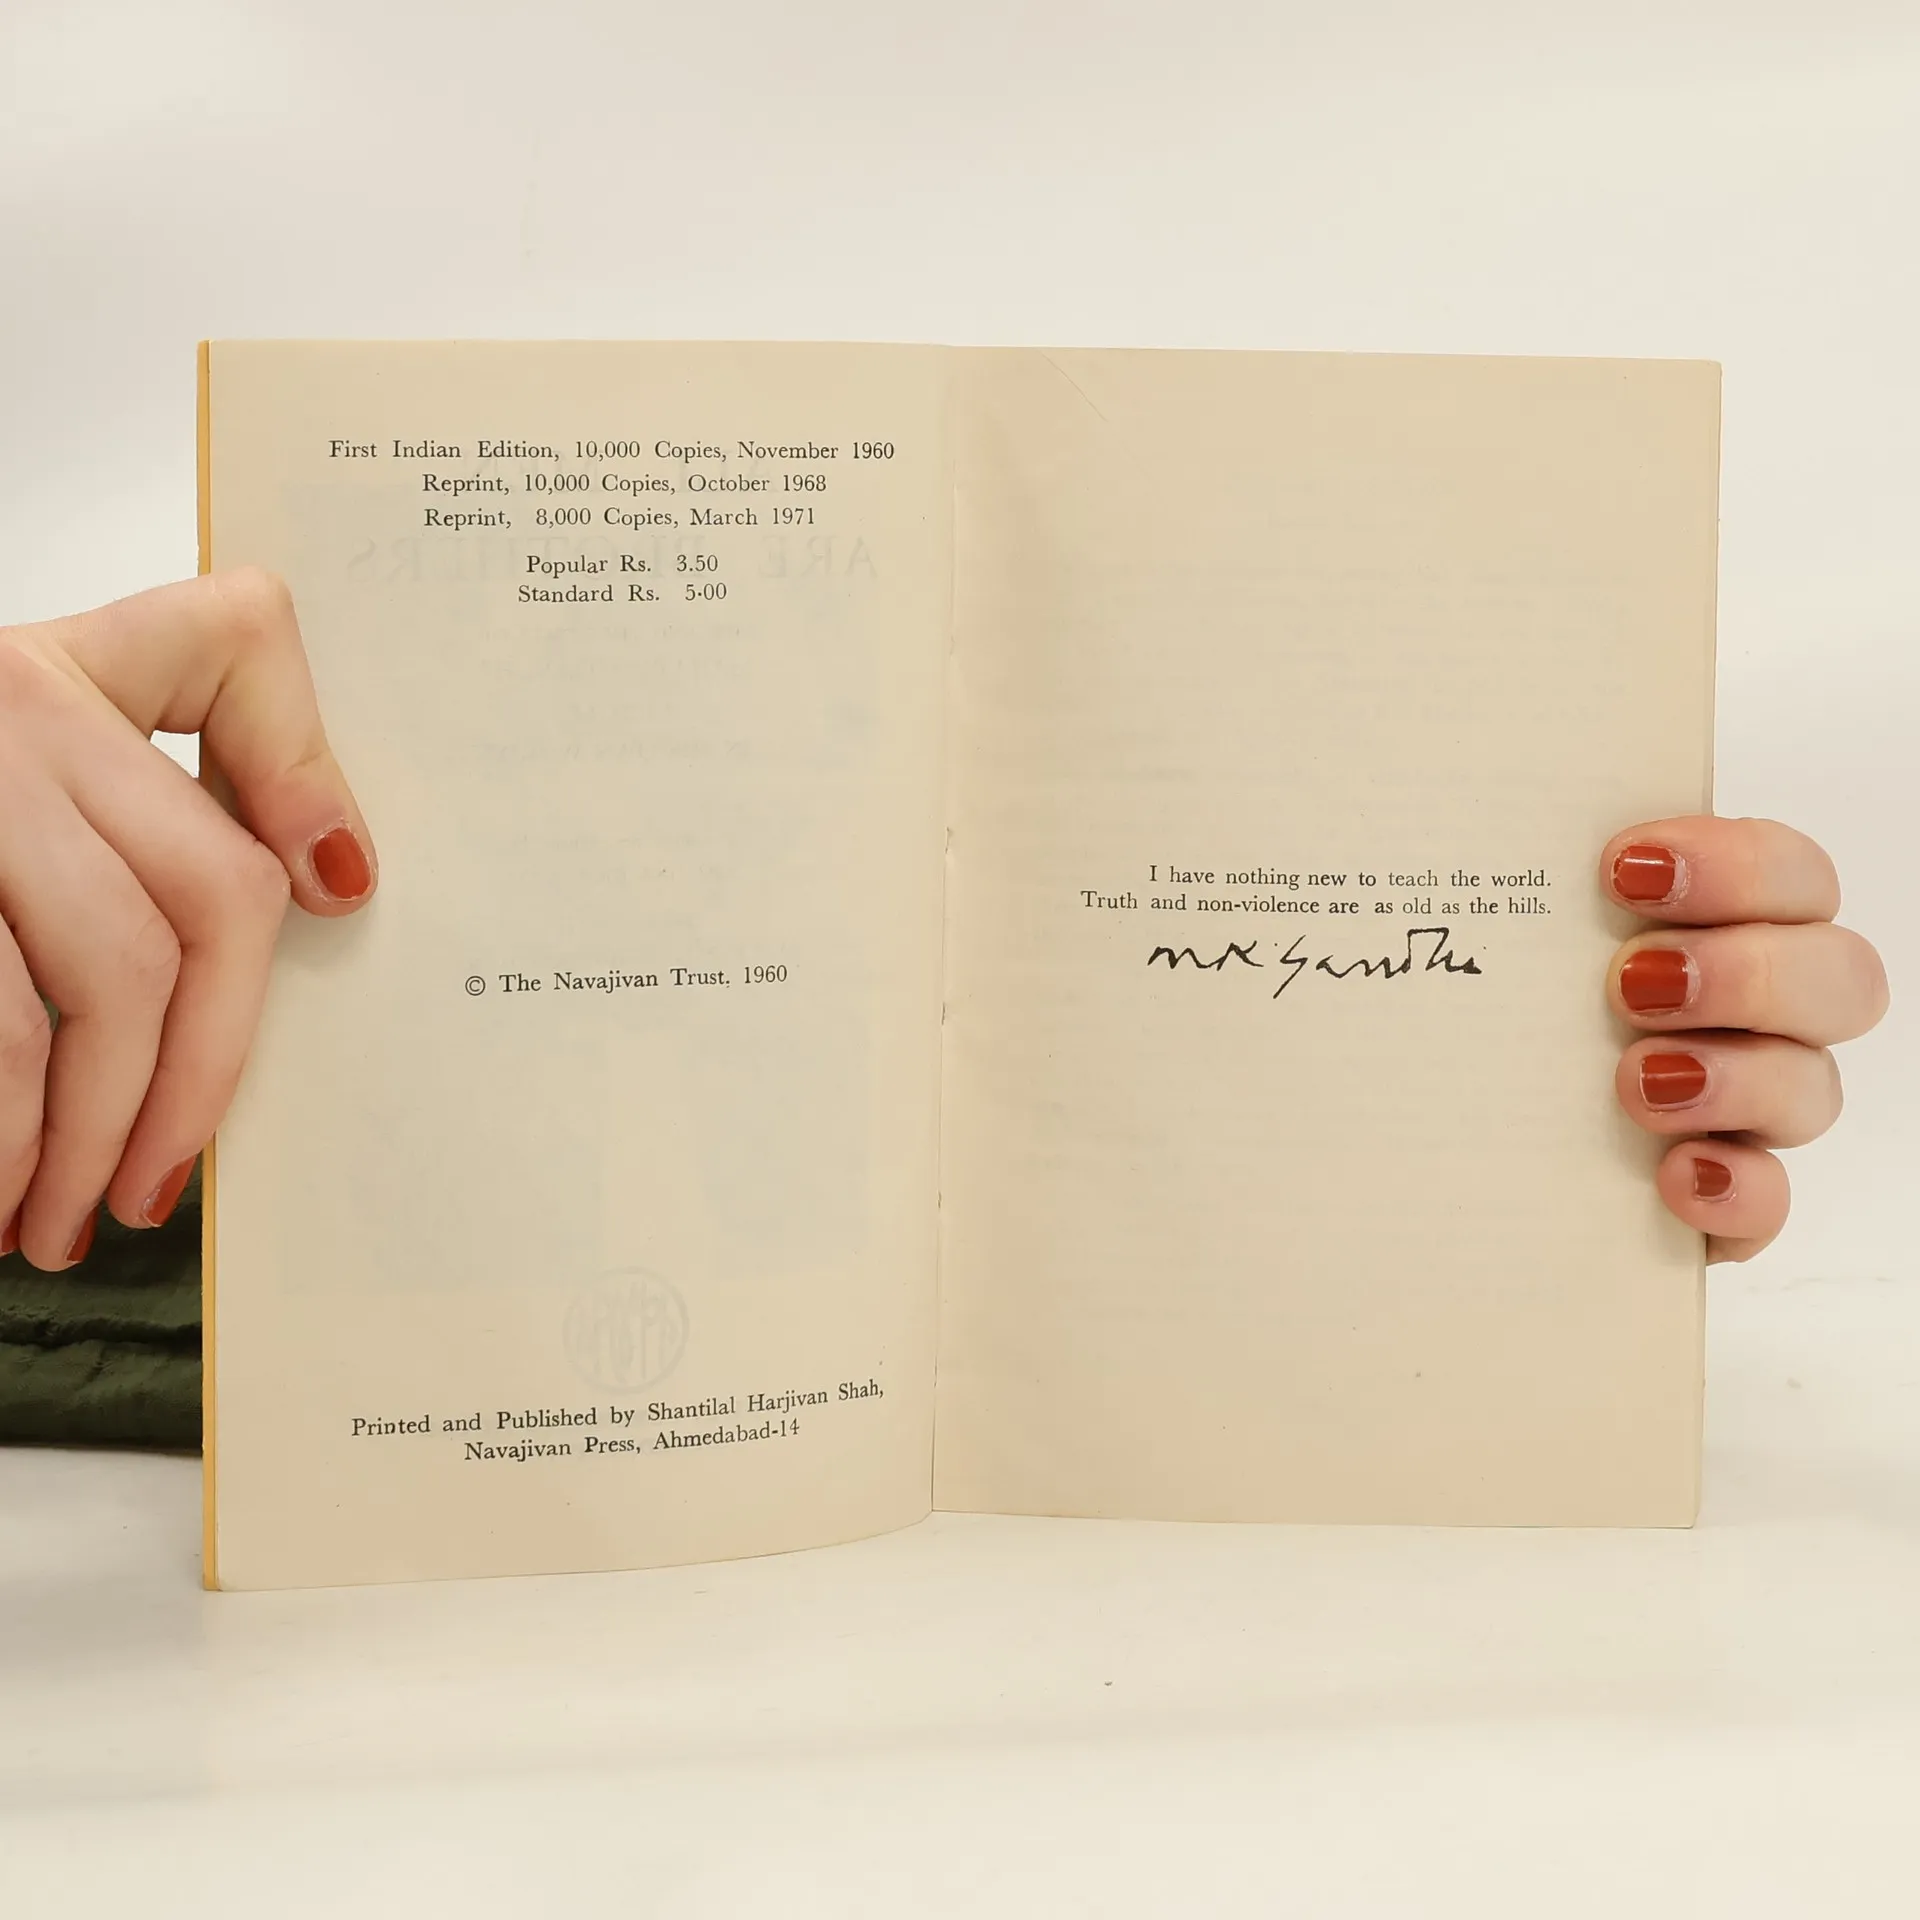 First Indian Edition, 10,000 Copies, November 1960
Reprint, 10,000 Copies, October 1968
Reprint, 8,000 Copies, March 1971
Popular Rs. 3.50
Standard Rs. 5·00
© The Navajivan Trust, 1960
Printed and Published by Shantilal Harjivan Shah,
Navajivan Press, Ahmedabad-14
I have nothing new to teach the world.
Truth and non-violence are as old as the hills.
MK Gandhi